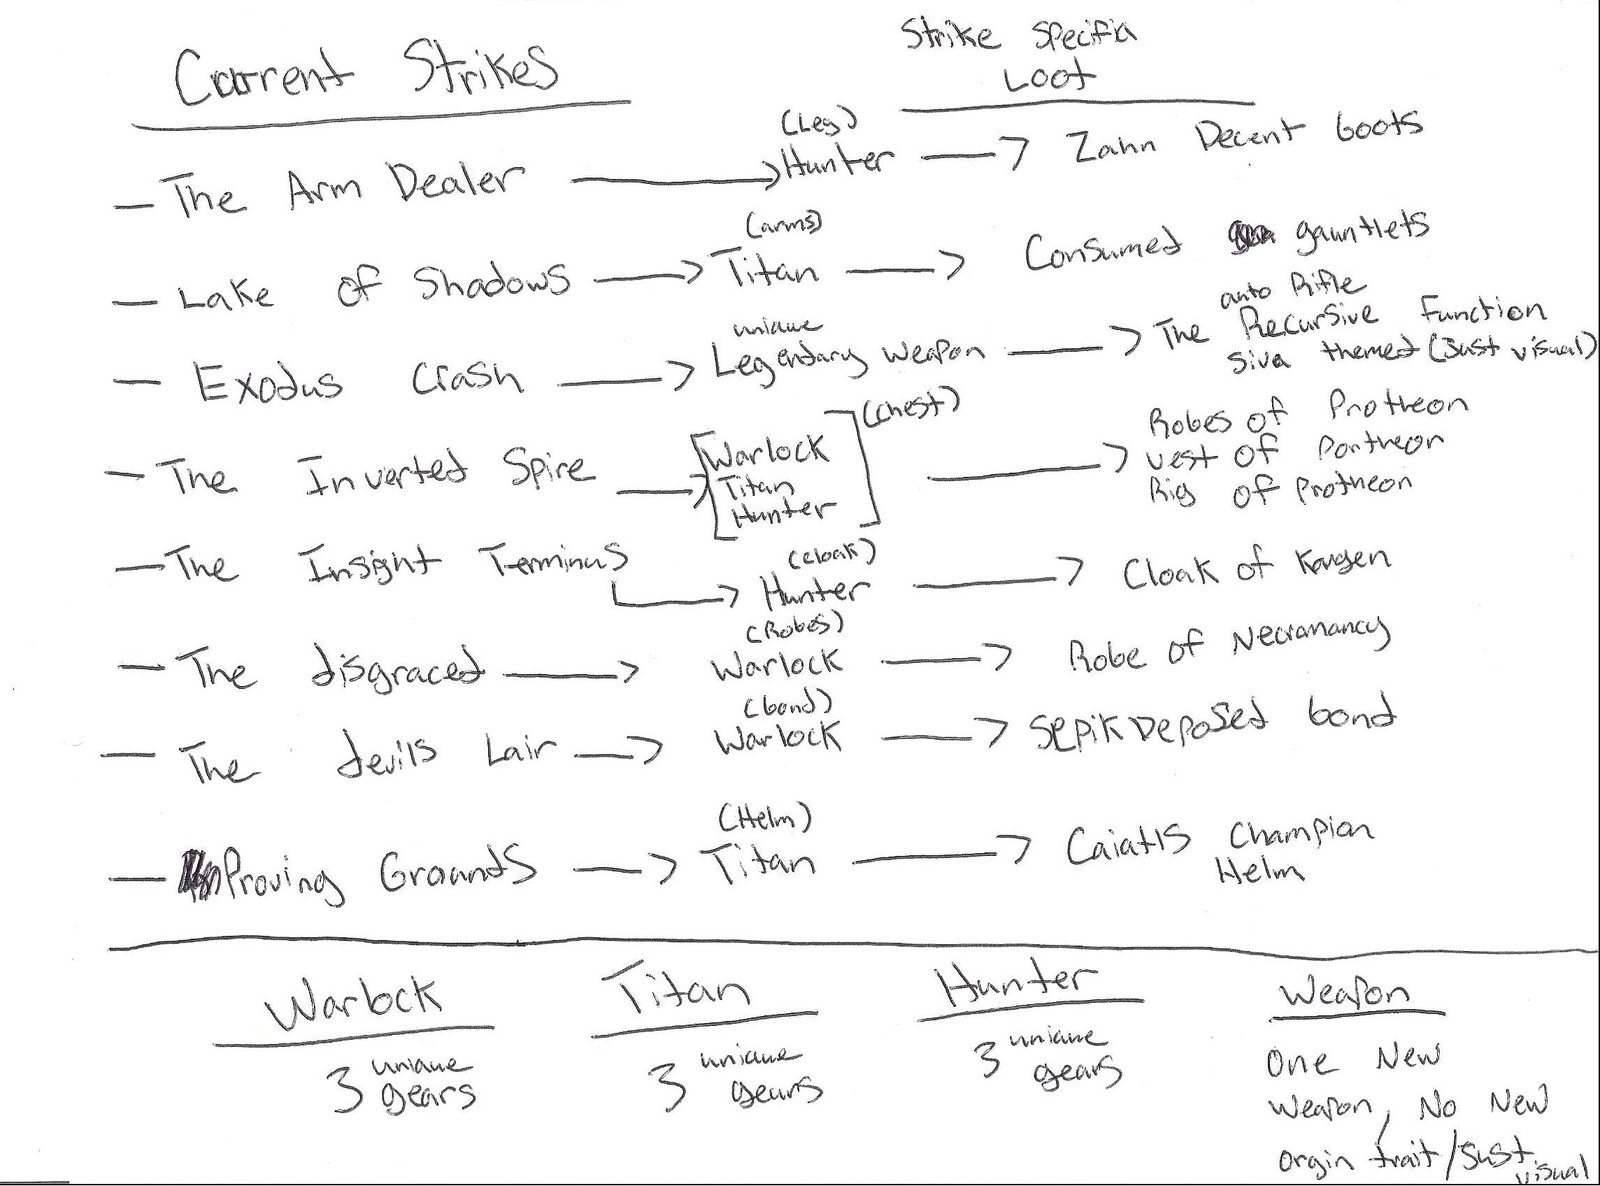 Current Strikes
Strike Specific
Loot
— The Arm Dealer → (Leg) Hunter → Zahn Decent boots
— Lake of Shadows → (arms) Titan → Consumed gauntlets
— Exodus Crash → unique Legendary weapon → The Recursive Function
auto Rifle
Siva themed (Just visual)
— The Inverted Spire → [Warlock
Titan
Hunter] (Chest) → Robes of Protheon
Vest of Pontheon
Rig of Protheon
— The Insight Terminus
(cloak)
→ Hunter → Cloak of Kargen
— The disgraced → (Robes) Warlock → Robe of Necromancy
— The devils Lair → (bond) Warlock → Sepik Deposed bond
— Proving Grounds → (Helm) Titan → Caiatls Champion
Helm
Warlock
3 unique
gears
Titan
3 unique
gears
Hunter
3 unique
gears
Weapon
One New
Weapon, No New
orgin trait/Just
visual